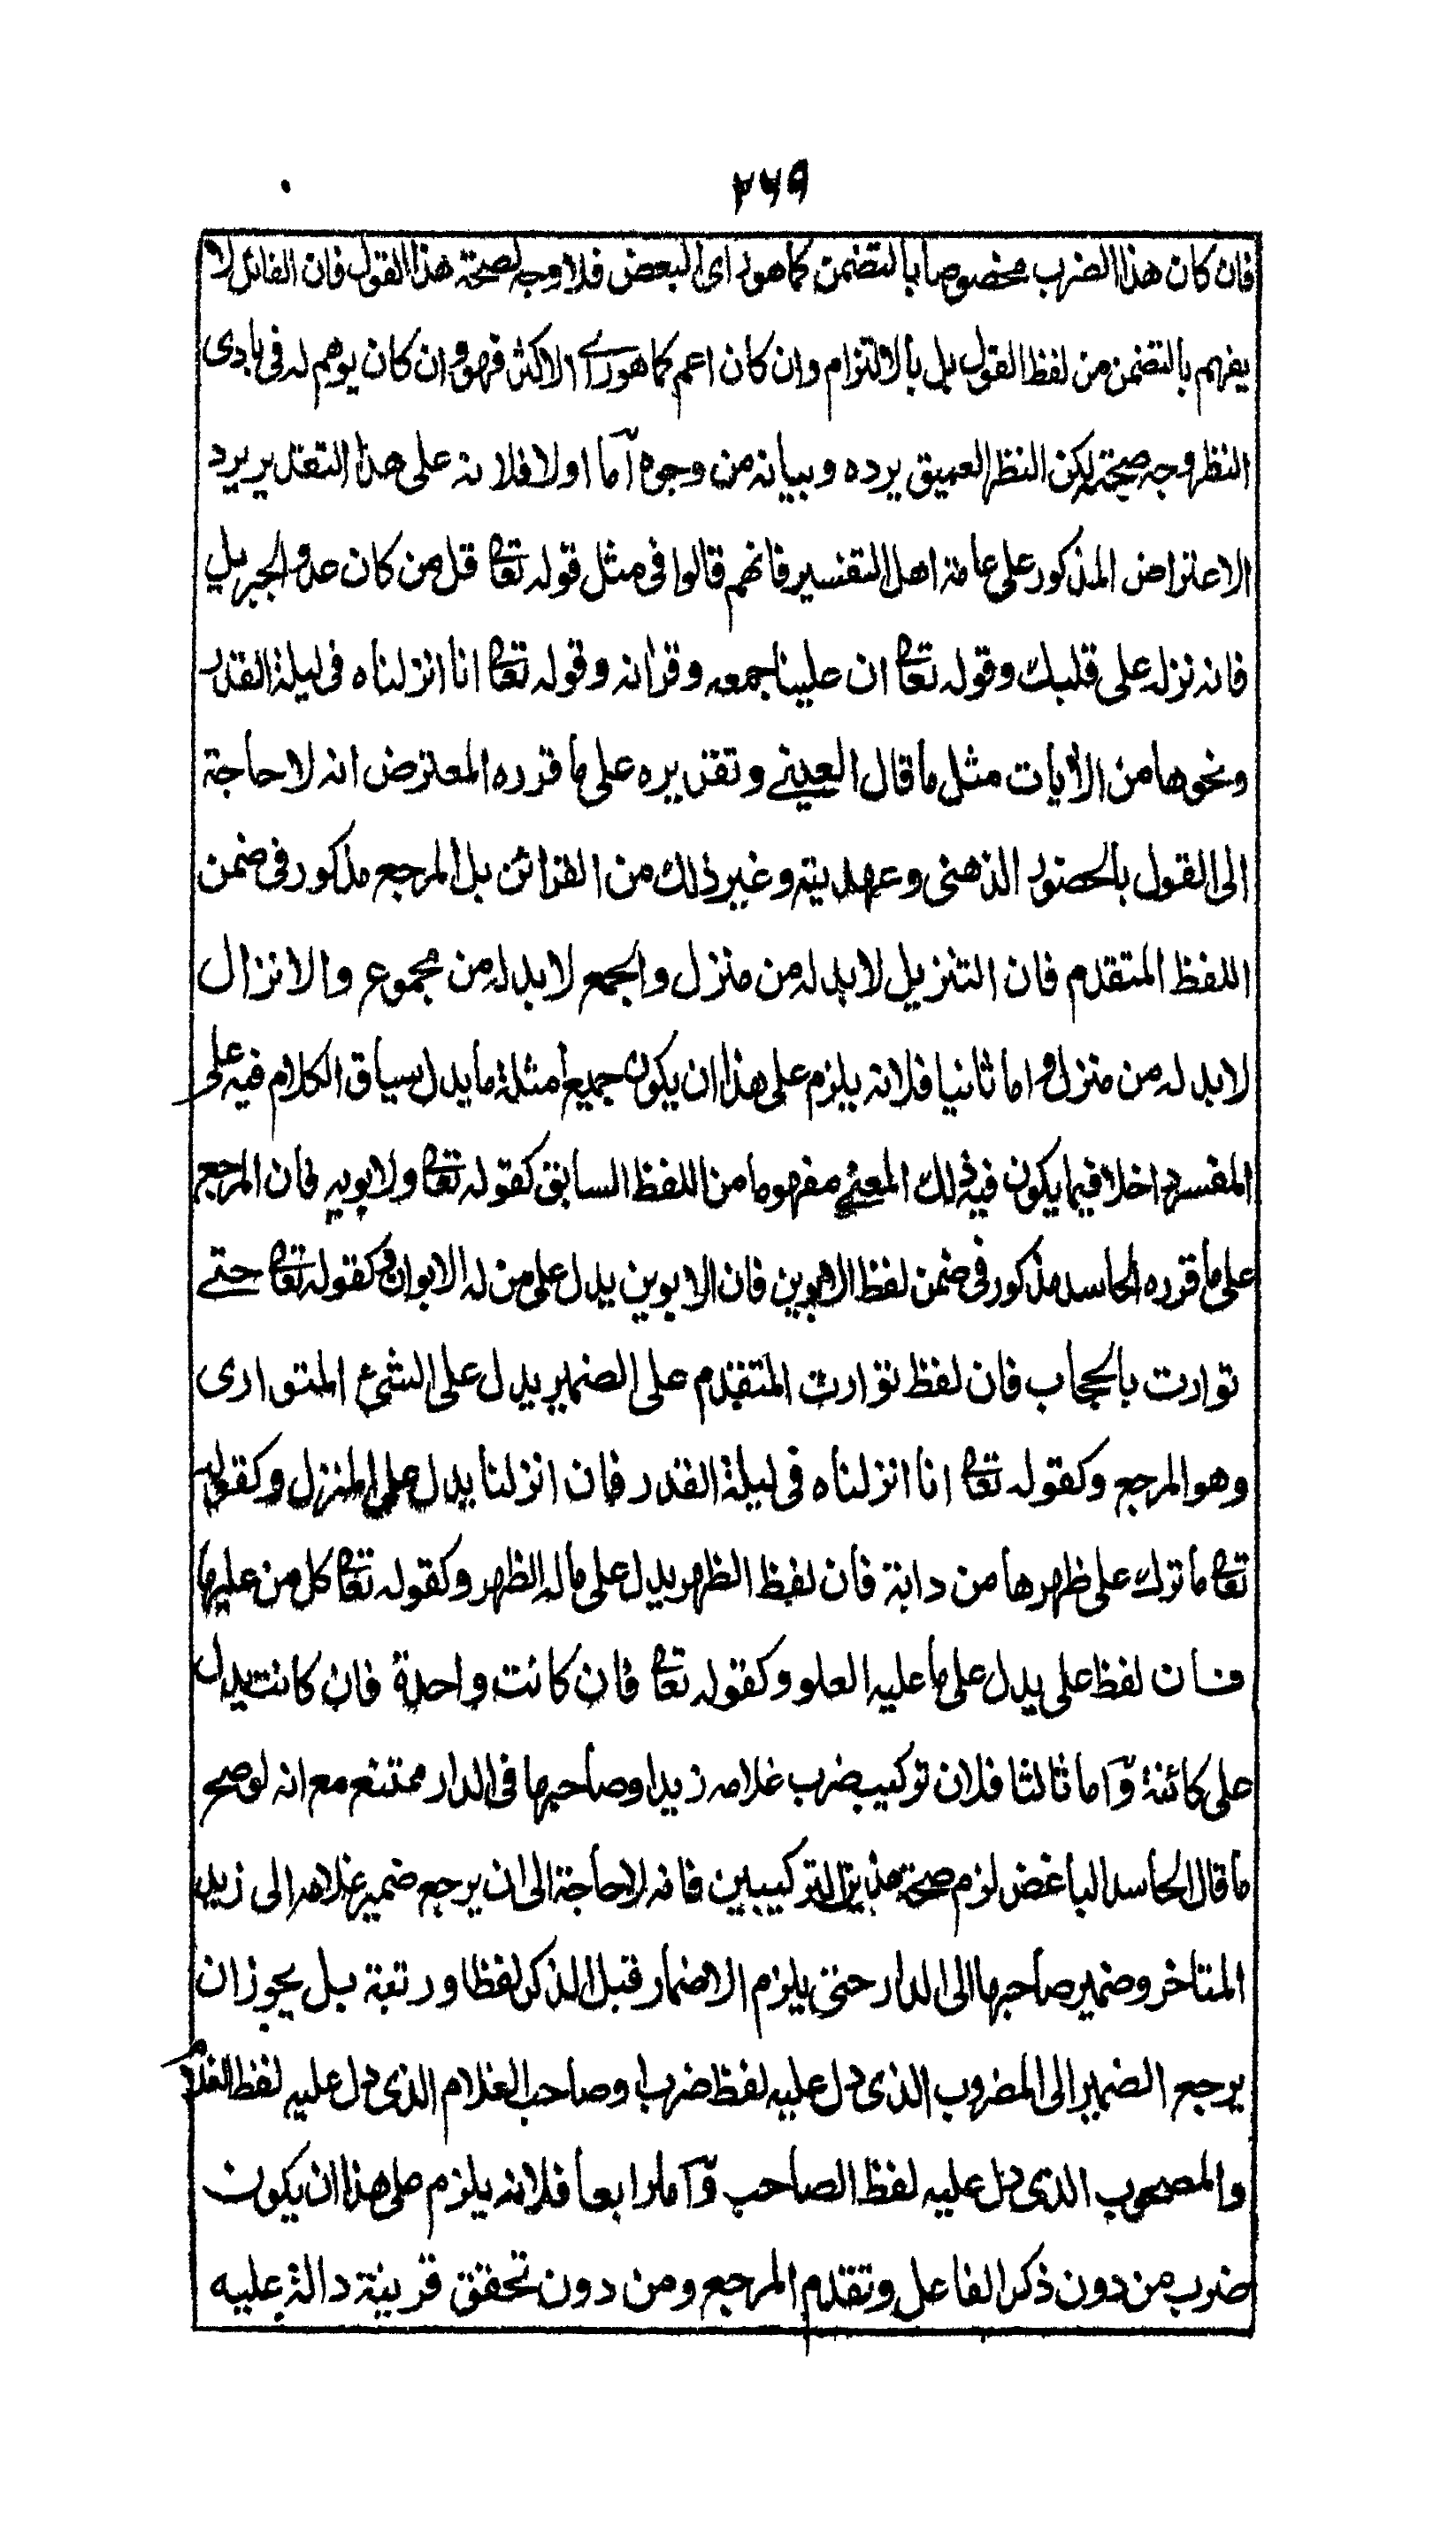 ۲۶۹
فان كان هذا الضرب مخصوصا بالتضمن كما هو راى البعض فلا وجه لصحة هذا القول فان القائل لا
يفهم بالتضمن من لفظ القول بل بالالتزام وان كان اعم كما هو راے الاكثر فهو وان كان يوهم له فى بادى
النظر وجه صحته لكن النظر العميق يرده وبيانه من وجوه آما اولا فلانه على هذا التقدير يرد
الاعتراض المذكور على عامة اهل التفسير فانهم قالوا فى مثل قوله تعا قل من كان عدوا لجبريل
فانه نزله على قلبك وقوله تعا ان علينا جمعه وقرانه وقوله تعا انا انزلناه فى ليلة القدر
ونحوها من الأيات مثل ما قال العينے وتقريره على ما قرره المعترض انه لا حاجة
الى القول بالحضور الذهنى وعهديته وغير ذلك من القرائن بل المرجع مذكور فى ضمن
اللفظ المتقدم فان التنزيل لا بد له من منزل والجمع لا بد له من مجموع والانزال
لا بد له من منزل واما ثانيا فلانه يلزم على هذا ان يكون جميع امثلة ما يدل سياق الكلام فيه على
المفسر داخلا فيما يكون فيه ذلك المعنے مفهوما من اللفظ السابق كقوله تعا ولابويه فان المرجع
على ما قرره الحاسد مذكور فى ضمن لفظ الابوين فان الابوين يدل على من له الابوان وكقوله تعا حتے
توارت بالحجاب فان لفظ توارت المتقدم على الضمير يدل على الشئ المتوارى
وهو المرجع وكقوله تعا انا انزلناه فى ليلة القدر فان انزلنا يدل على المنزل وكقوله
تعا ما ترك على ظهرها من دابة فان لفظ الظهر يدل على ما له الظهر وكقوله تعا كل من عليها
فان لفظ على يدل على ما عليه العلو وكقوله تعا فان كانت واحدة فان كانت يدل
على كائنة وآما ثالثا فلان تركيب ضرب غلامه زيدا وصاحبها فى الدار ممتنع مع انه لو صح
ما قال الحاسد الباغض لزم صحة هذين التركيبين فانه لا حاجة الى ان يرجع ضمير غلامه الى زيد
المتاخر وضمير صاحبها الى الدار حتى يلزم الاضمار قبل الذكر لفظا ورتبة بل يجوز ان
يرجع الضمير الى المضروب الذى دل عليه لفظ ضرب او صاحب الغلام الذى دل عليه لفظ الغلام
والمصحوب الذى دل عليه لفظ الصاحب وآما رابعا فلانه يلزم على هذا ان يكون
ضرب من دون ذكر الفاعل وتقدم المرجع ومن دون تحقق قرينة دالة عليه